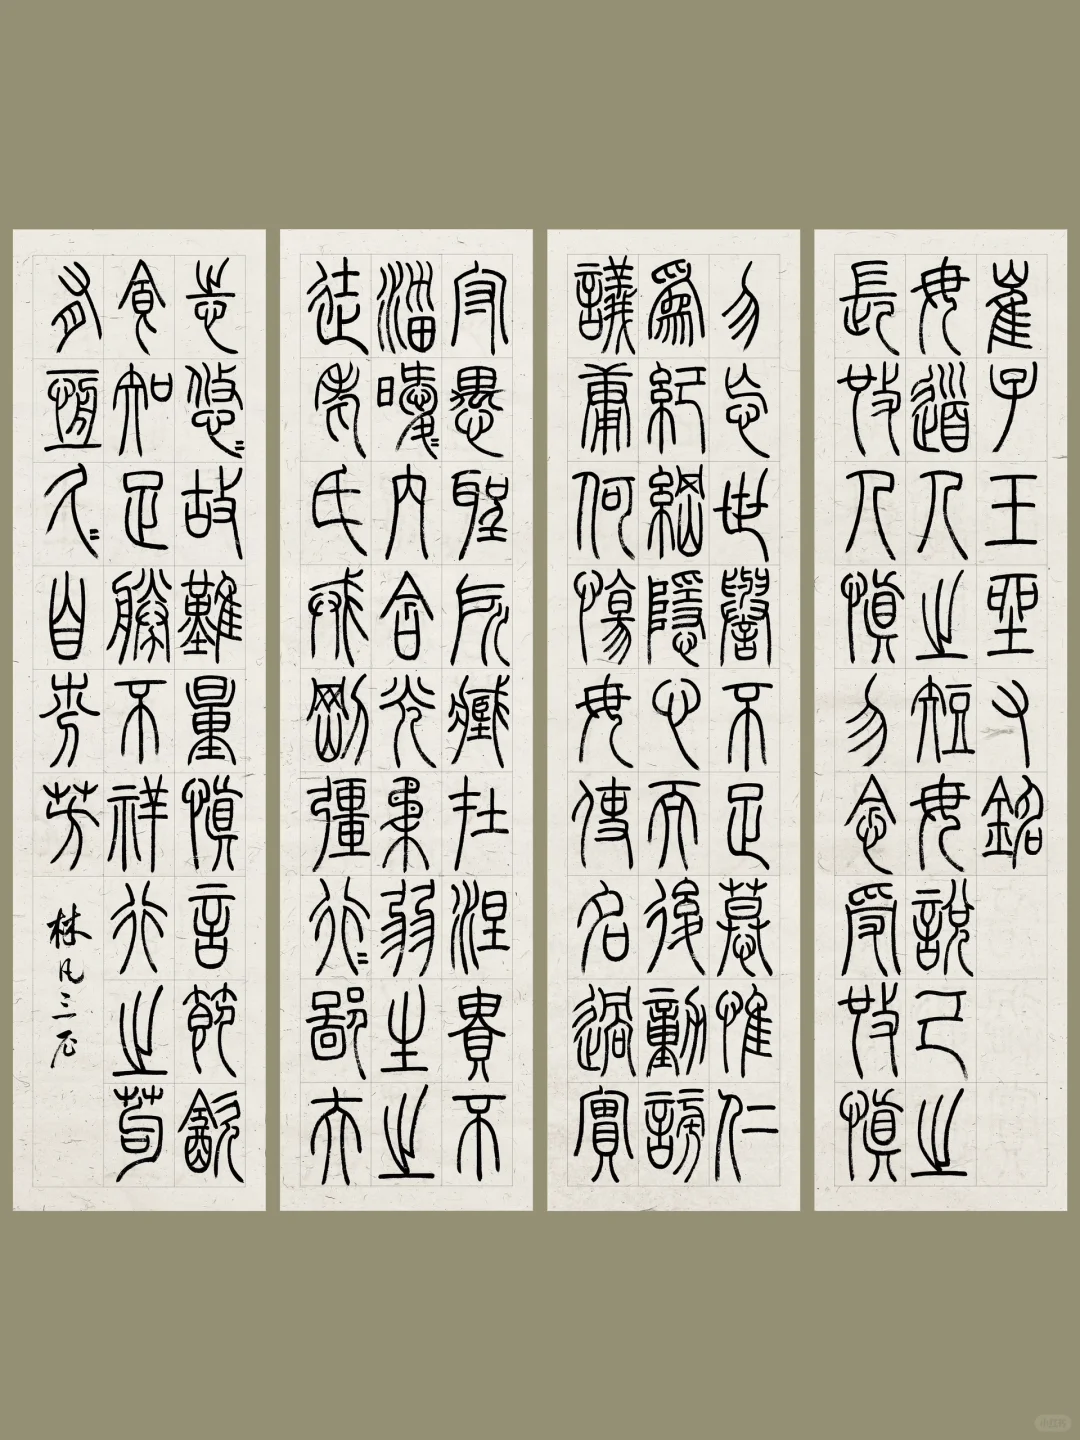 崔子玉座右銘
毋道人之短毋說己之
長施人慎勿念受施慎
勿忘世譽不足慕惟仁
爲紀綱隱心而後動謗
議庸何傷毋使名過實
守愚聖所臧在涅貴不
淄曖〻內含光柔弱生之
徒老氏戒剛彊行〻鄙夫
志悠〻故難量慎言節飲
食知足勝不祥行之苟
有恆久〻自芬芳
林凡三石